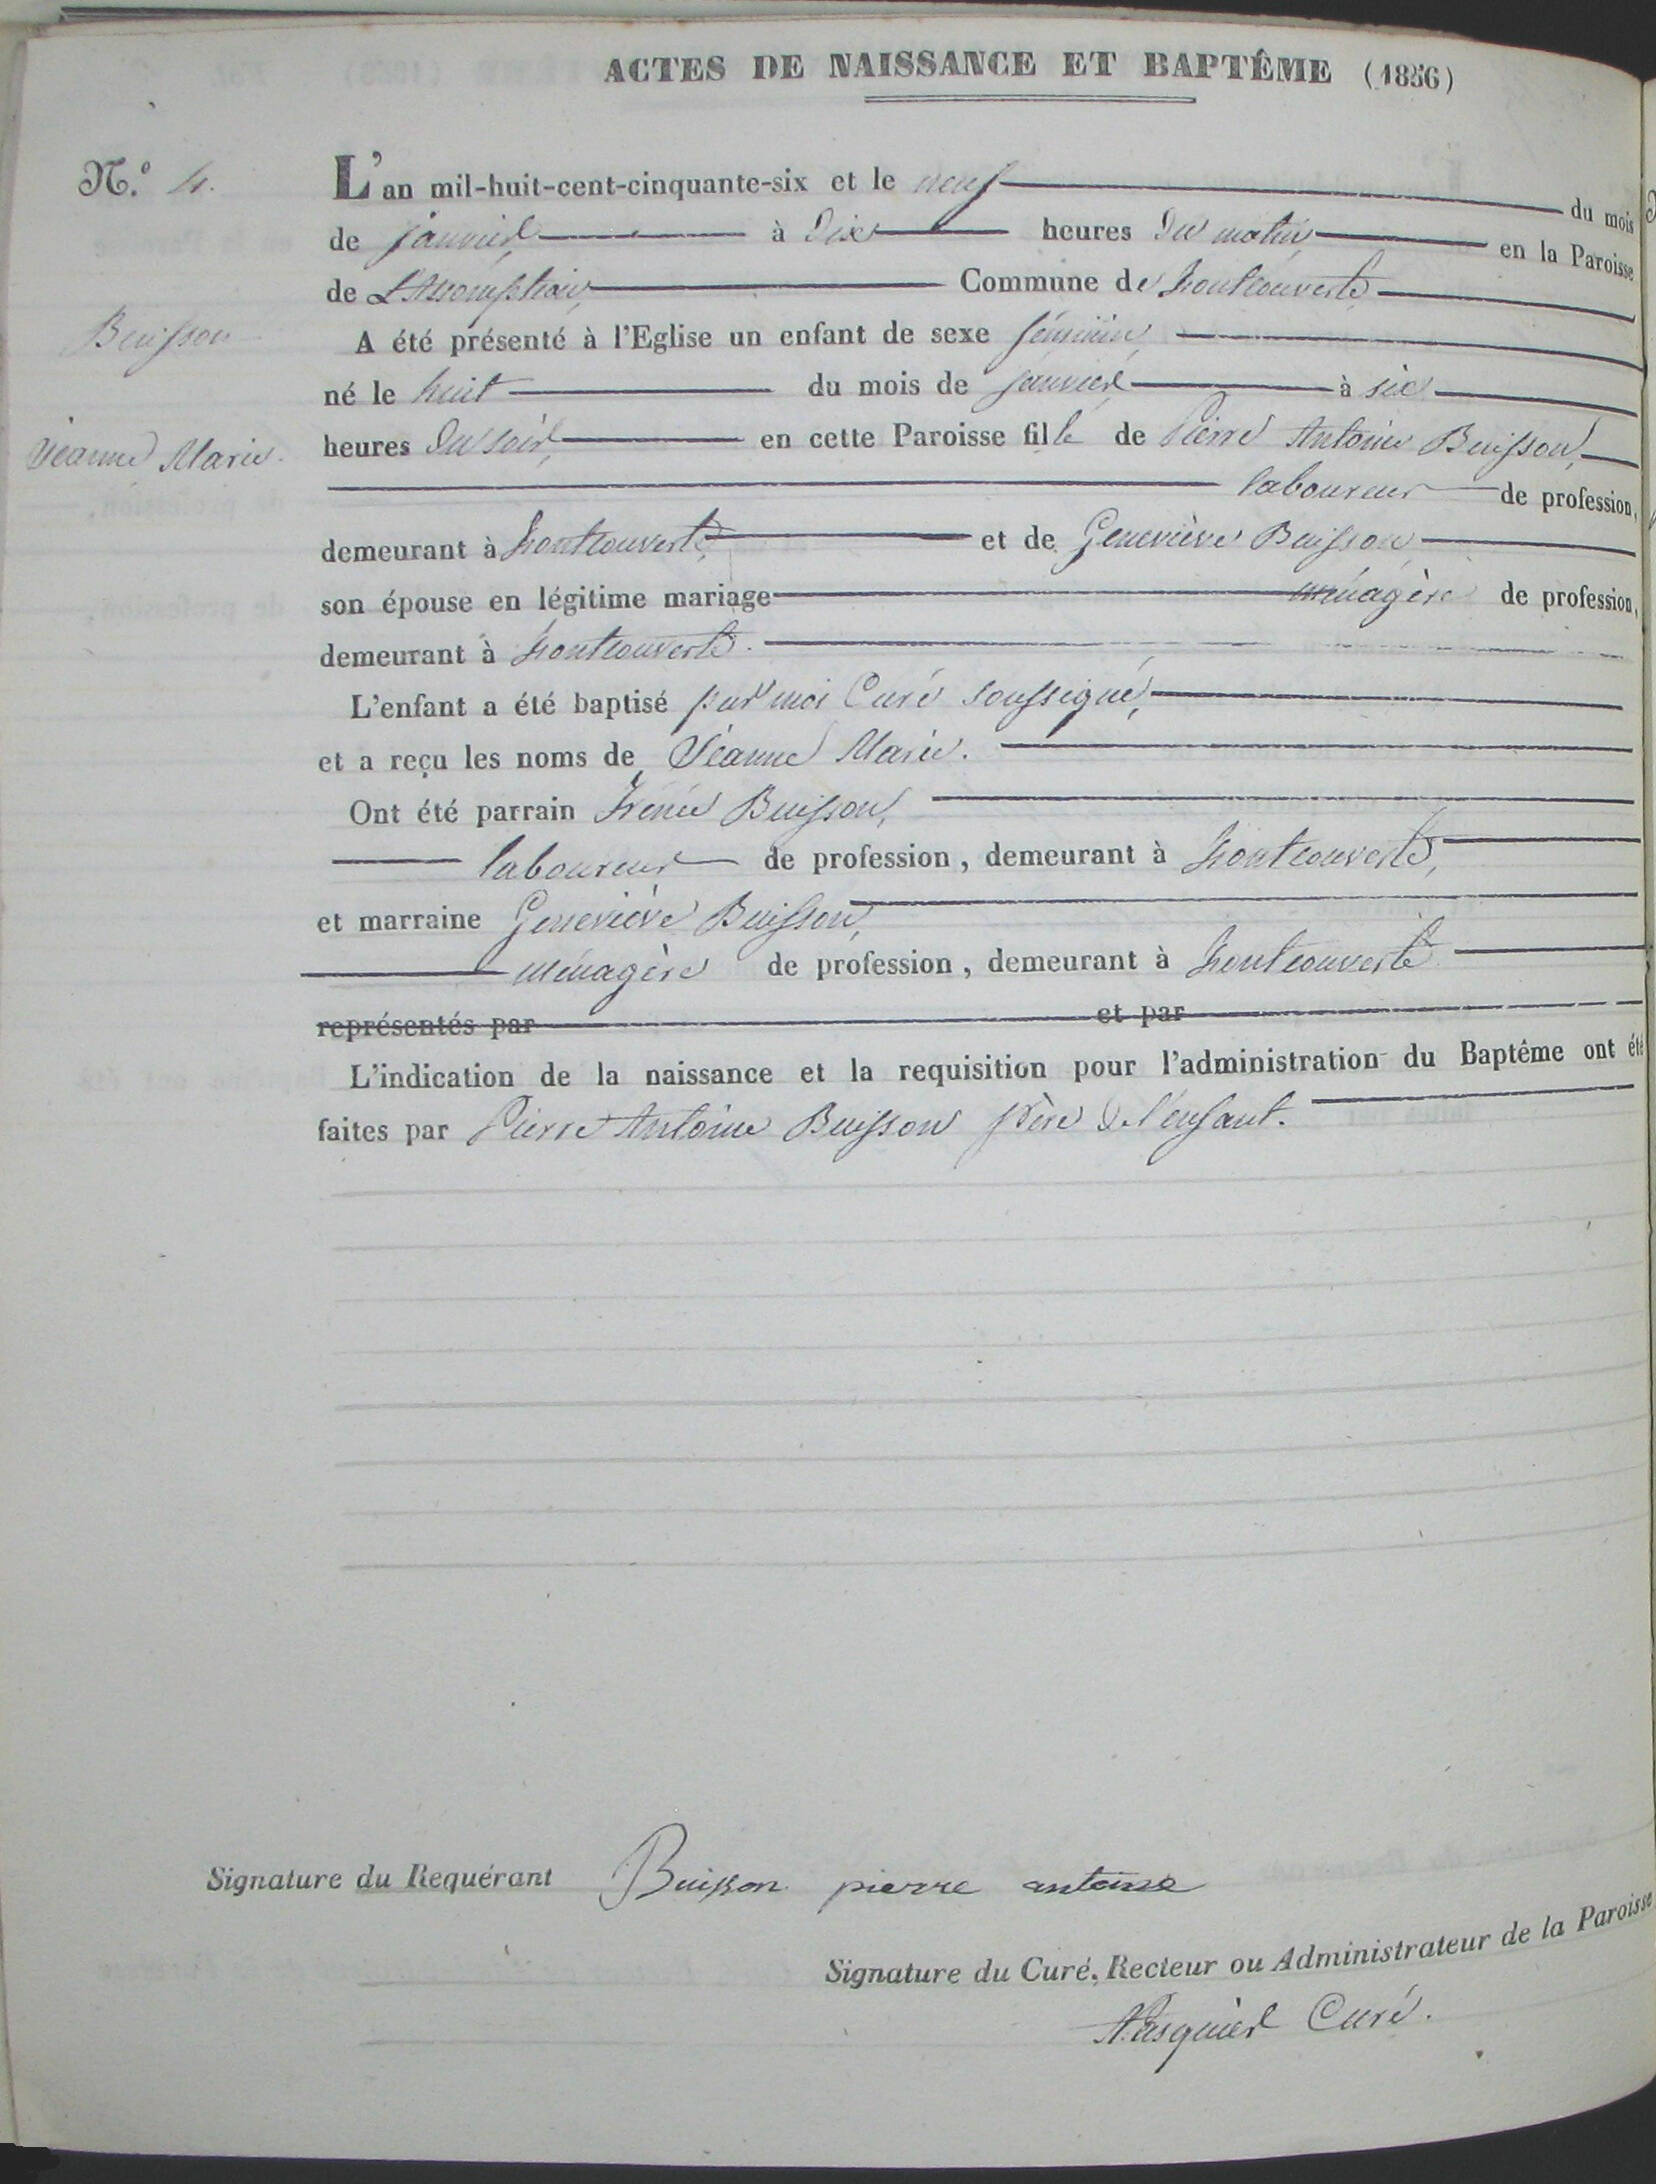 ACTES DE NAISSANCE ET BAPTÊME (1856)
N.º 4.
L'an mil-huit-cent-cinquante-six et le neuf du mois
de janvier à dix heures du matin en la Paroisse
de L'Assomption, Commune de Montcouverte,
Buisson
A été présenté à l'Eglise un enfant de sexe féminin
né le huit du mois de janvier à six
Jeanne Marie.
heures du soir, en cette Paroisse fille de Pierre Antoine Buisson,
laboureur de profession,
demeurant à Montcouverte, et de Geneviève Buisson,
son épouse en légitime mariage ménagère de profession,
demeurant à Montcouverte.
L'enfant a été baptisé par moi Curé soussigné,
et a reçu les noms de Jeanne Marie.
Ont été parrain Irénée Buisson,
laboureur de profession, demeurant à Montcouverte,
et marraine Geneviève Buisson,
ménagère de profession, demeurant à Montcouverte
représentés par et par
L'indication de la naissance et la requisition pour l'administration du Baptême ont été
faites par Pierre Antoine Buisson père de l'enfant.
Signature du Requérant Buisson pierre antoine
Signature du Curé, Recteur ou Administrateur de la Paroisse
Pasquier Curé.